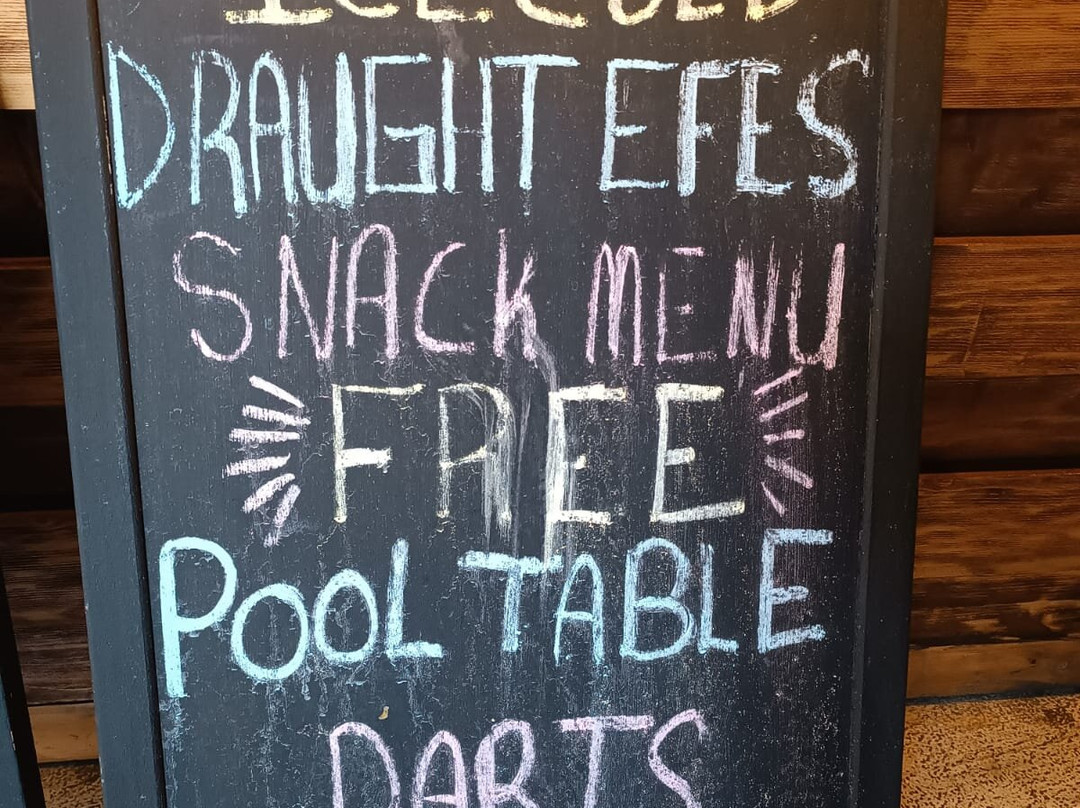 ICE COLD
DRAUGHT EFES
SNACK MENU
FREE
POOL TABLE
DARTS